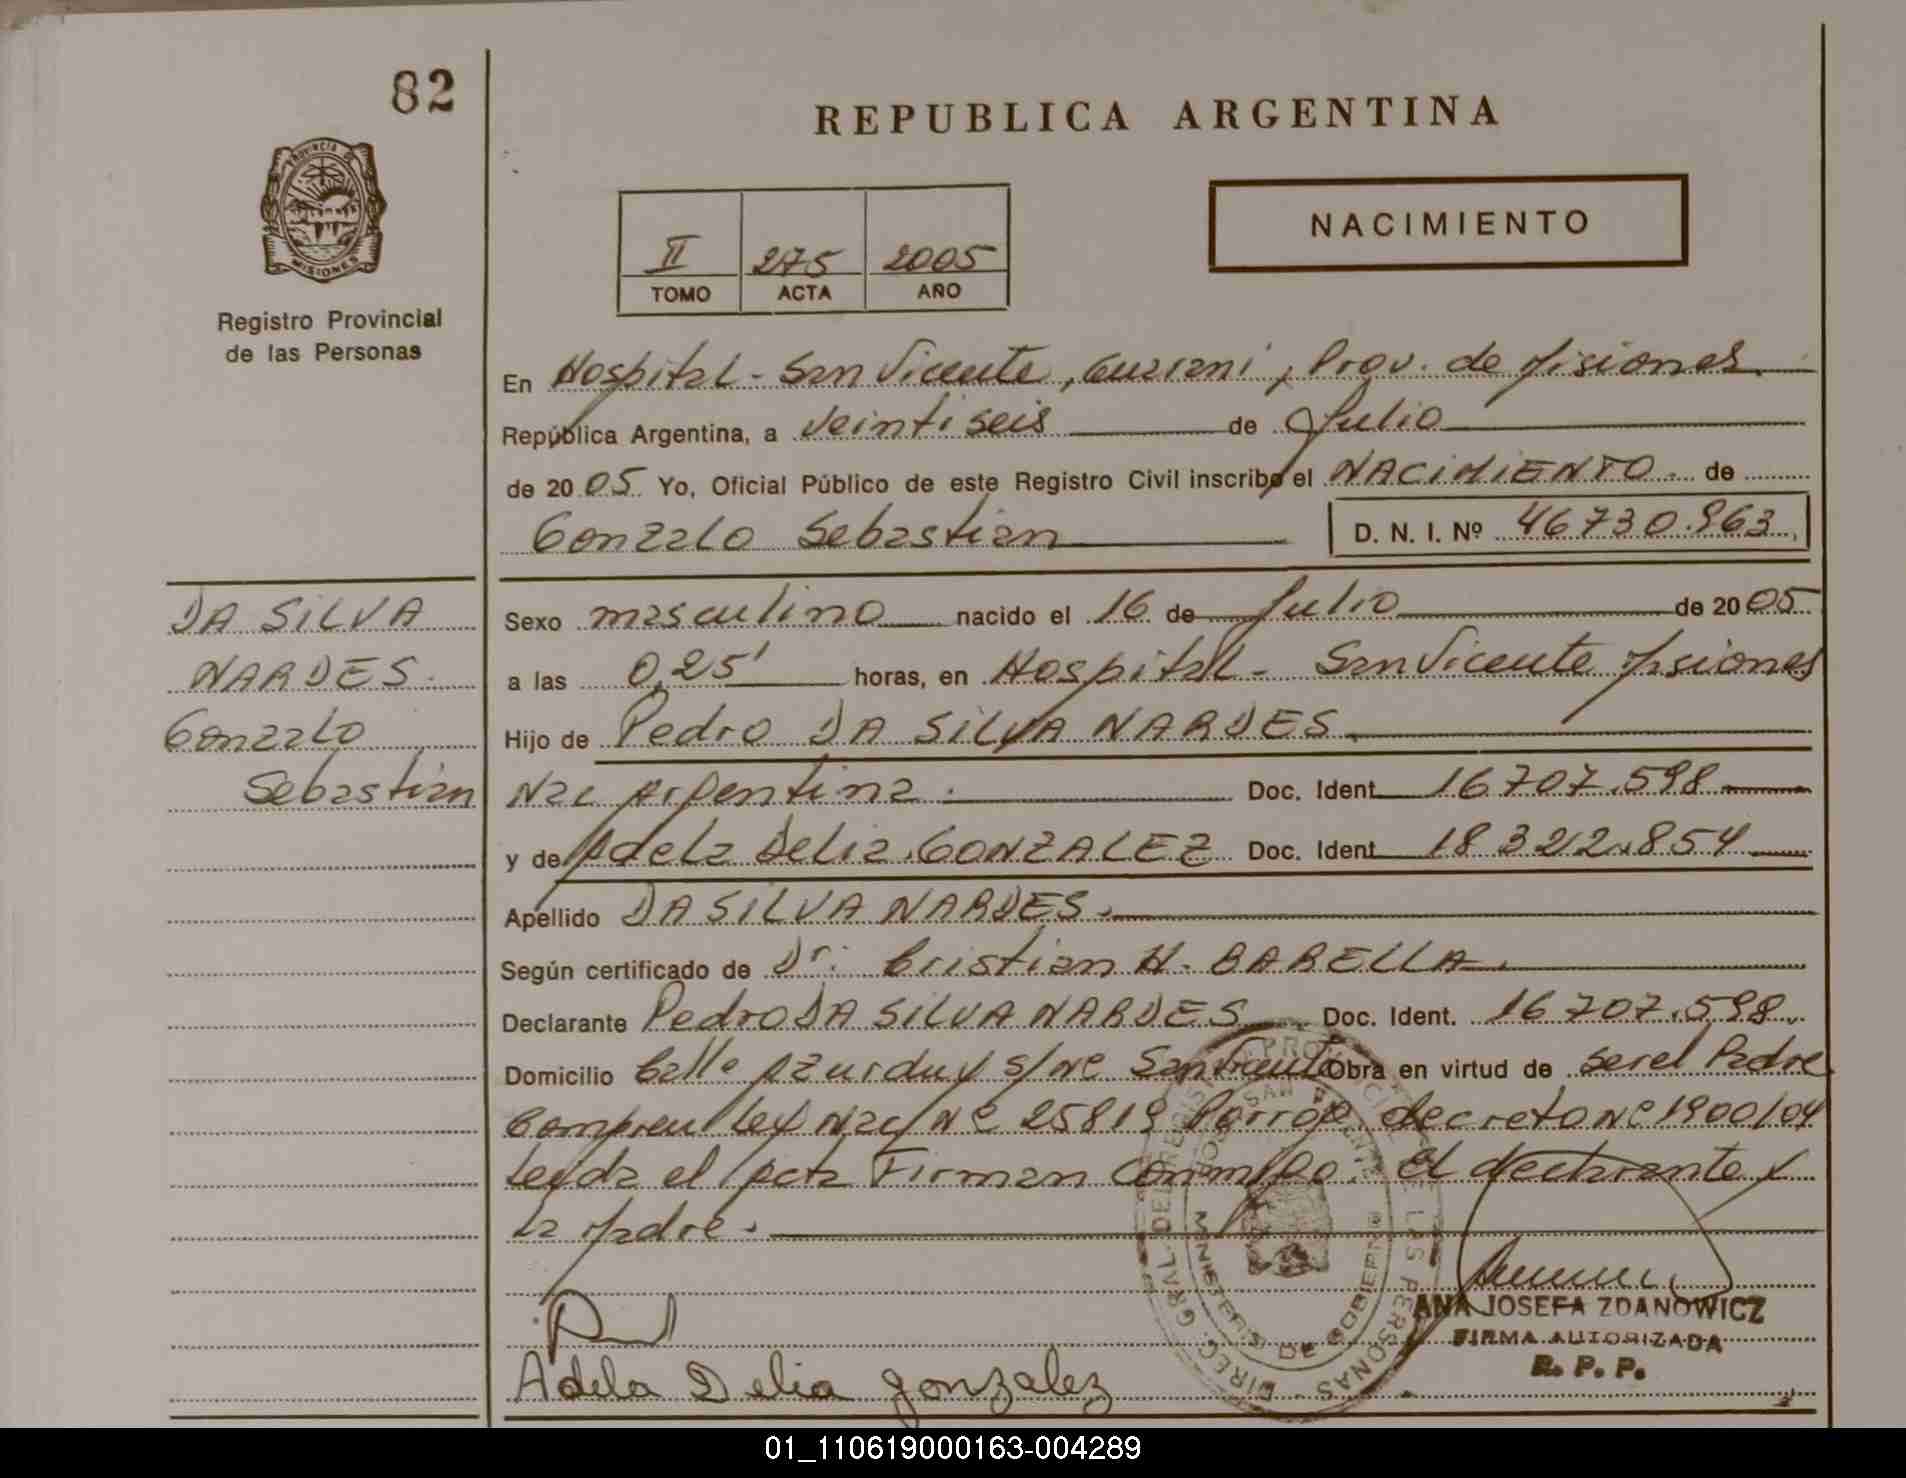 82
REPUBLICA ARGENTINA
PROVINCIA DE
MISIONES
Registro Provincial
de las Personas
II 275 2005
TOMO ACTA AÑO
NACIMIENTO
En Hospital - San Vicente, Guarani, Prov. de Misiones.
República Argentina, a veintiseis de Julio
de 20 05 Yo, Oficial Público de este Registro Civil inscribo el NACIMIENTO. de
Gonzalo Sebastian D. N. I. Nº 46730.963
DA SILVA
NARDES.
Gonzalo
Sebastian
Sexo masculino nacido el 16 de Julio de 20 05
a las 0,25' horas, en Hospital - San Vicente Misiones
Hijo de Pedro DA SILVA NARDES.
Nac Argentina. Doc. Ident 16 707.598
y de Adela Delia. GONZALEZ Doc. Ident 18 322.854
Apellido DA SILVA NARDES.
Según certificado de Dr. Cristian H. BARELLA.
Declarante Pedro DA SILVA NARDES Doc. Ident. 16 707.598.
Domicilio Calle Azurduy s/Nº San Vicente Obra en virtud de ser el Padre
Ley Nac Nº 25819 decreto Nº 1900/04
Leyda el Acta Firman Conmigo. El declarante y
la Madre.
Adela Delia gonzalez
DIREC. GRAL. DEL REGISTRO PROVINCIAL DE LAS PERSONAS
MINISTERIO DE GOBIERNO
ANA JOSEFA ZDANOWICZ
FIRMA AUTORIZADA
R. P. P.
01_110619000163-004289